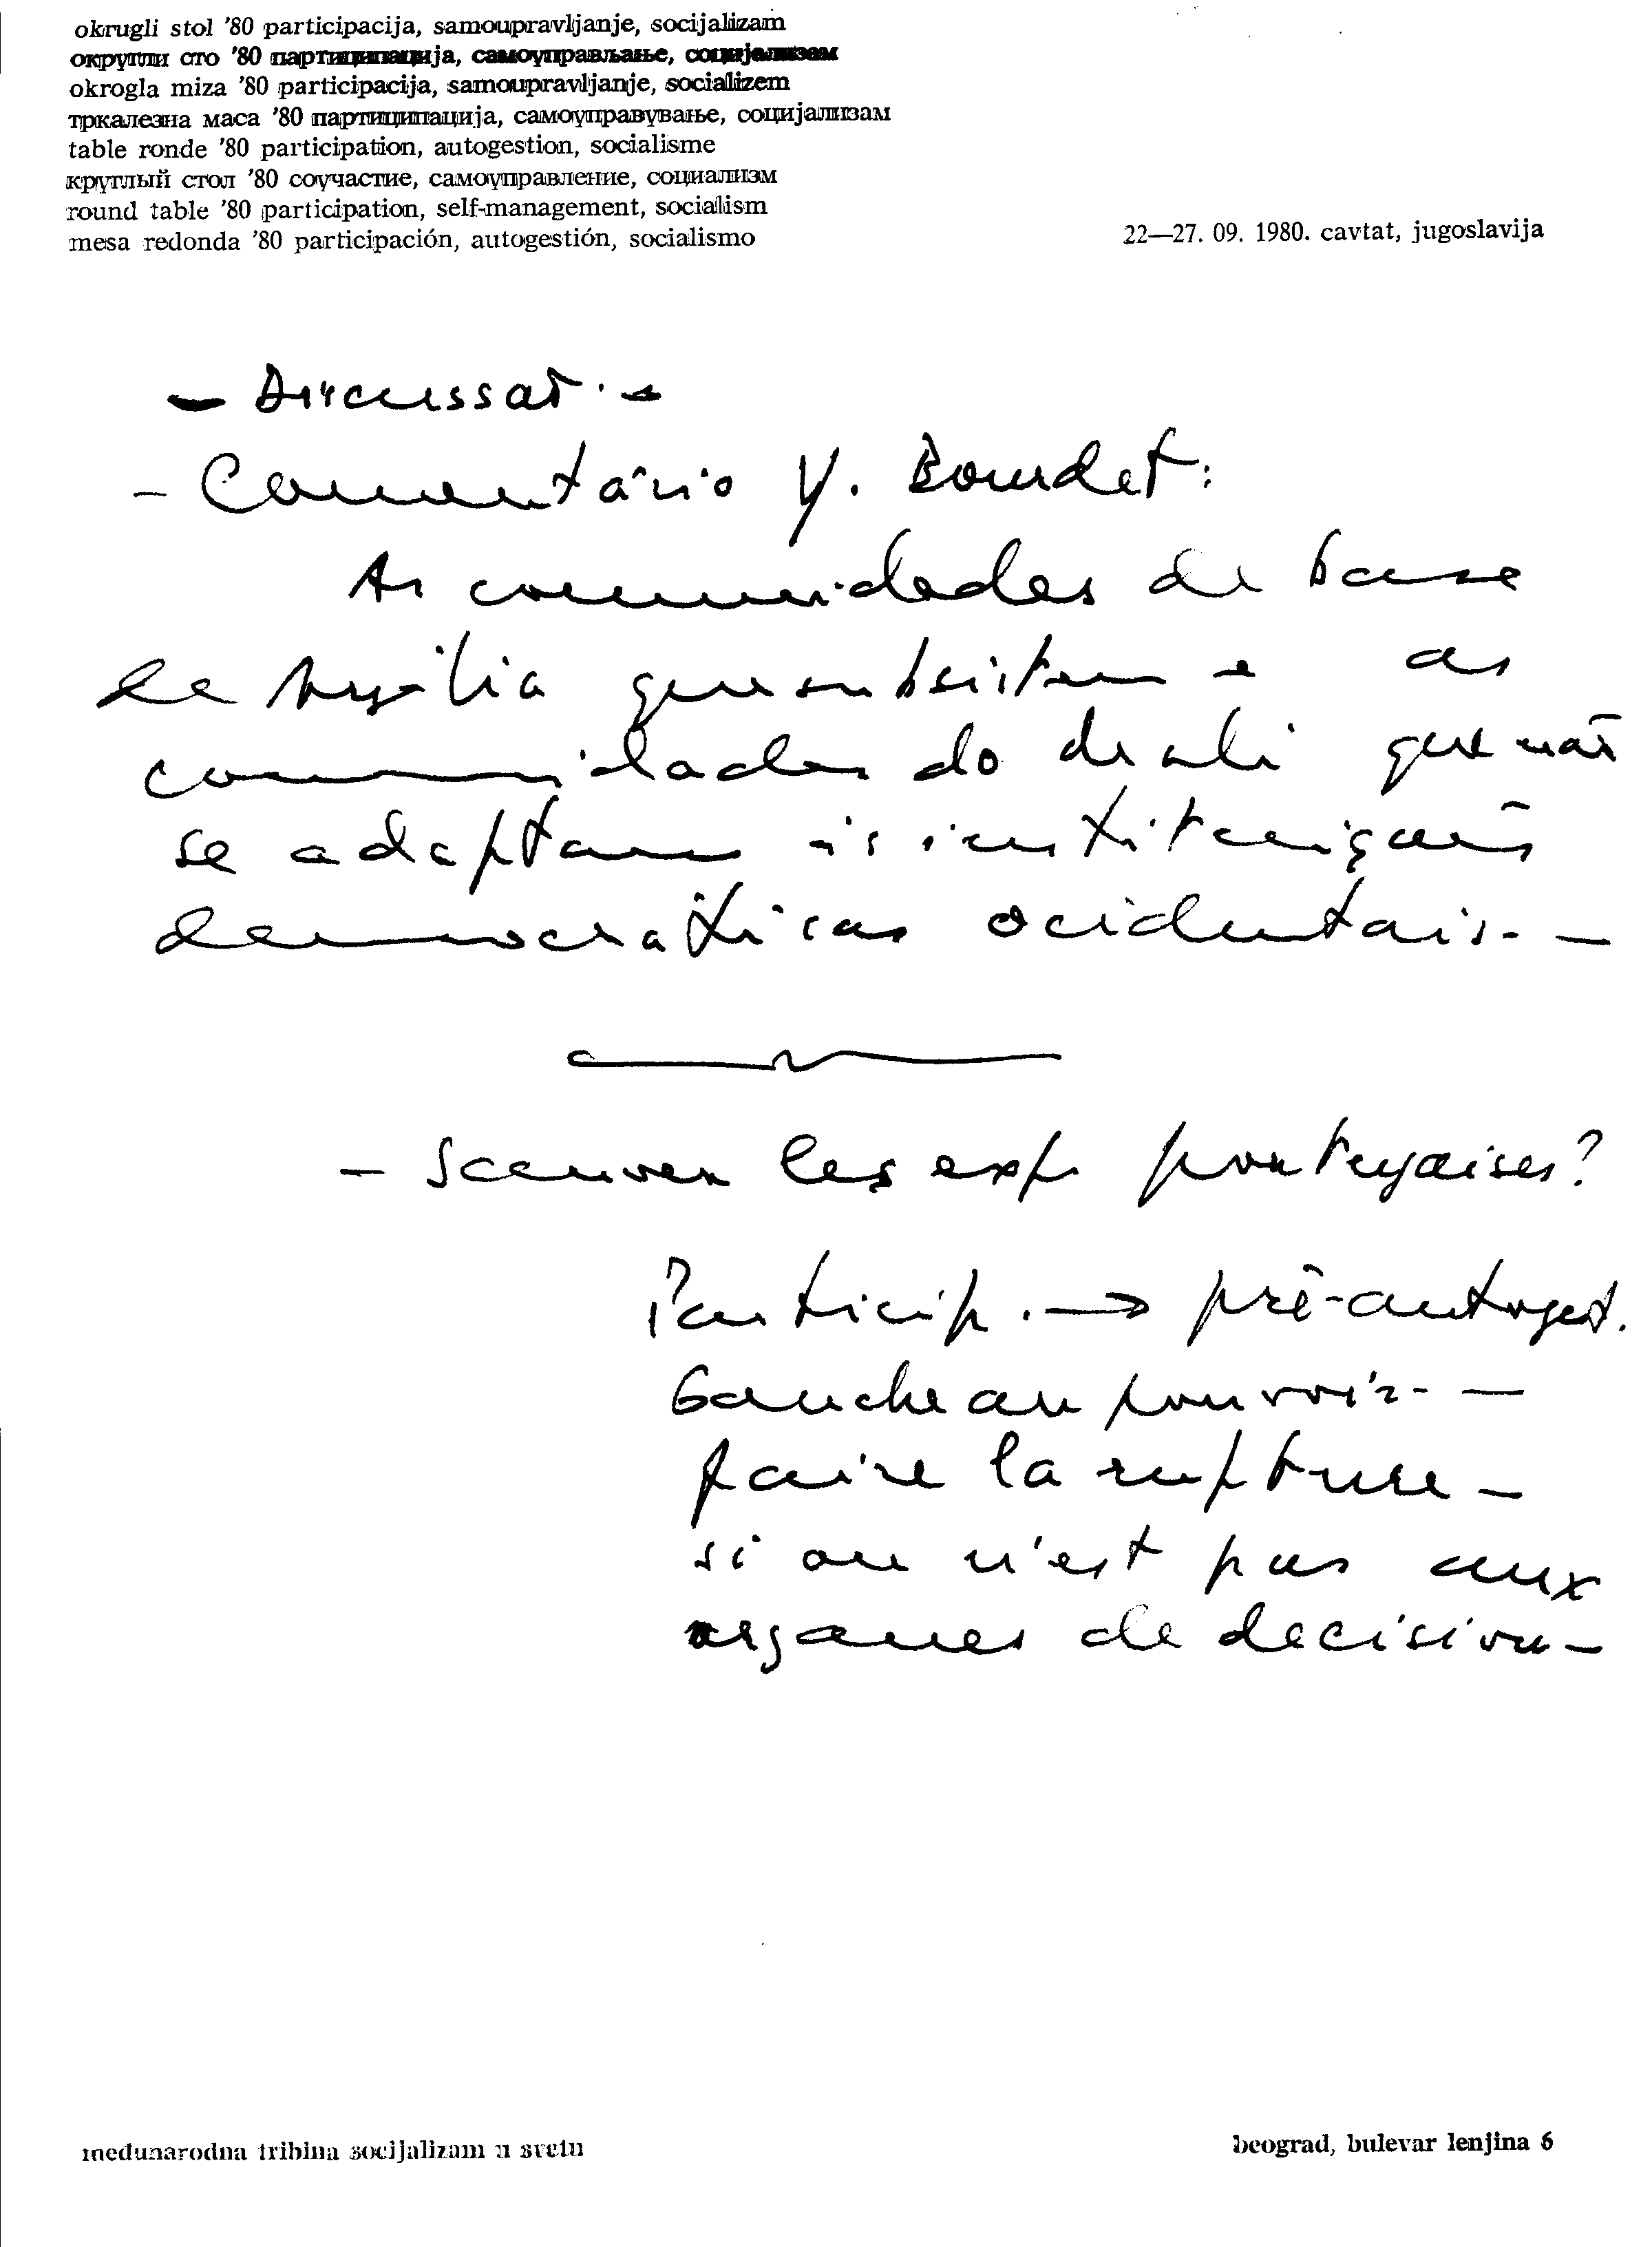 okrugli stol '80 participacija, samoupravljanje, socijalizam
округли сто '80 партиципација, самоуправљање, социјализам
okrogla miza '80 participacija, samoupravljanje, socializem
тркалезна маса '80 партиципација, самоуправување, социјализам
table ronde '80 participation, autogestion, socialisme
круглый стол '80 соучастие, самоуправление, социализм
round table '80 participation, self-management, socialism
mesa redonda '80 participación, autogestión, socialismo
22—27. 09. 1980. cavtat, jugoslavija
–
– Comentário Y. Bourdet:
As comunidades de base
da que subsistem e as
comunidades do que não
se adaptam às instituições
democráticas ocidentais. –
– les exp portugaises?
Particip. → pré-autogest.
Gauche au pouvoir. –
faire la rupture –
si on n'est pas aux
organes de decision –
međunarodna tribina socijalizam u svetu
beograd, bulevar lenjina 6